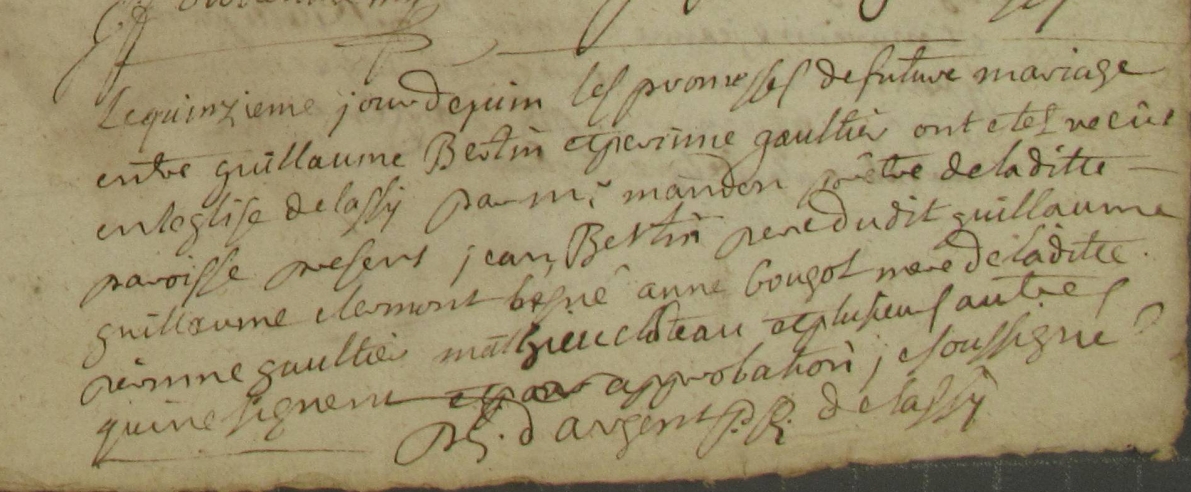 Lequinzieme jour dejuin les promesses defuture mariage
entre guillaume Bertin etperinne gaultier ont etes receus
enleglise delassy par mr mandon prêtre deladitte
paroisse presens jean Bertin pere dudit guillaume
guillaume clermont anne bougot mere deladitte
perinne gaultier mathieu etplusieurs autres
quine signent et par approbation je soussigné
d'argent delassy